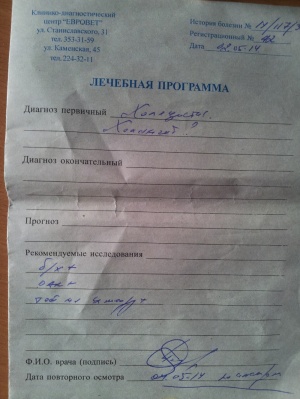 Клинико-диагностический
центр "ЕВРОВЕТ"
ул. Станиславского, 11
тел. 353-31-59
ул. Каменская, 45
тел. 224-32-11
История болезни №
Регистрационный №
Дата 02.05.14
ЛЕЧЕБНАЯ ПРОГРАММА
Диагноз первичный Холецистит
?
Диагноз окончательный
Прогноз
Рекомендуемые исследования
б/х +
оак +
Ф.И.О. врача (подпись)
Дата повторного осмотра 05.14